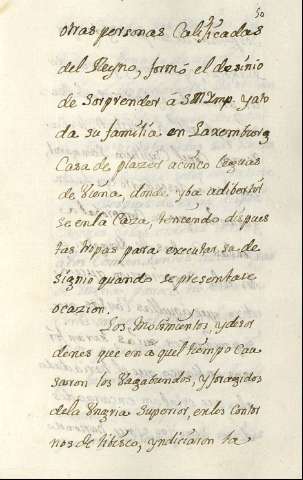 50
otras personas Calificadas
del Reyno, formó el desinio
de sorprender á S M Imp. y ato
da su familia en Laxemburg
Casa de plazer acinco leguas
de Viena donde yba adibertir
se enla Caza, teniendo dispues
tas tropas para executar su de
signio quando se presentase
ocazion.
Los mobimientos, y desor
denes que en a quel tiempo Cau
saron los Vagabundos, y foragidos
dela Vngria Superior, enlos Contor
nos de tibisco, yndiciaron la